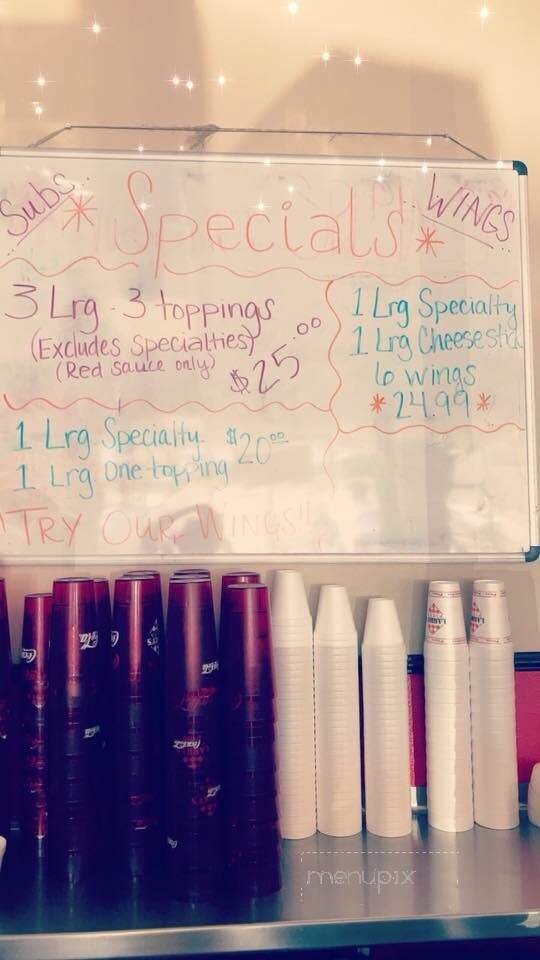 Subs..
* Specials *
.. WINGS
3 Lrg - 3 toppings
(Excludes Specialties)
(Red sauce only)
$25.00
1 Lrg Specialty
1 Lrg One topping
$20.00
!TRY OUR WINGS!!
1 Lrg Specialty
1 Lrg Cheesestick
6 wings
* 24.99 *
Coca-Cola
menupix